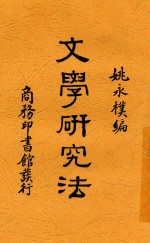 姚永樸編
文學研究法
商務印書館發行